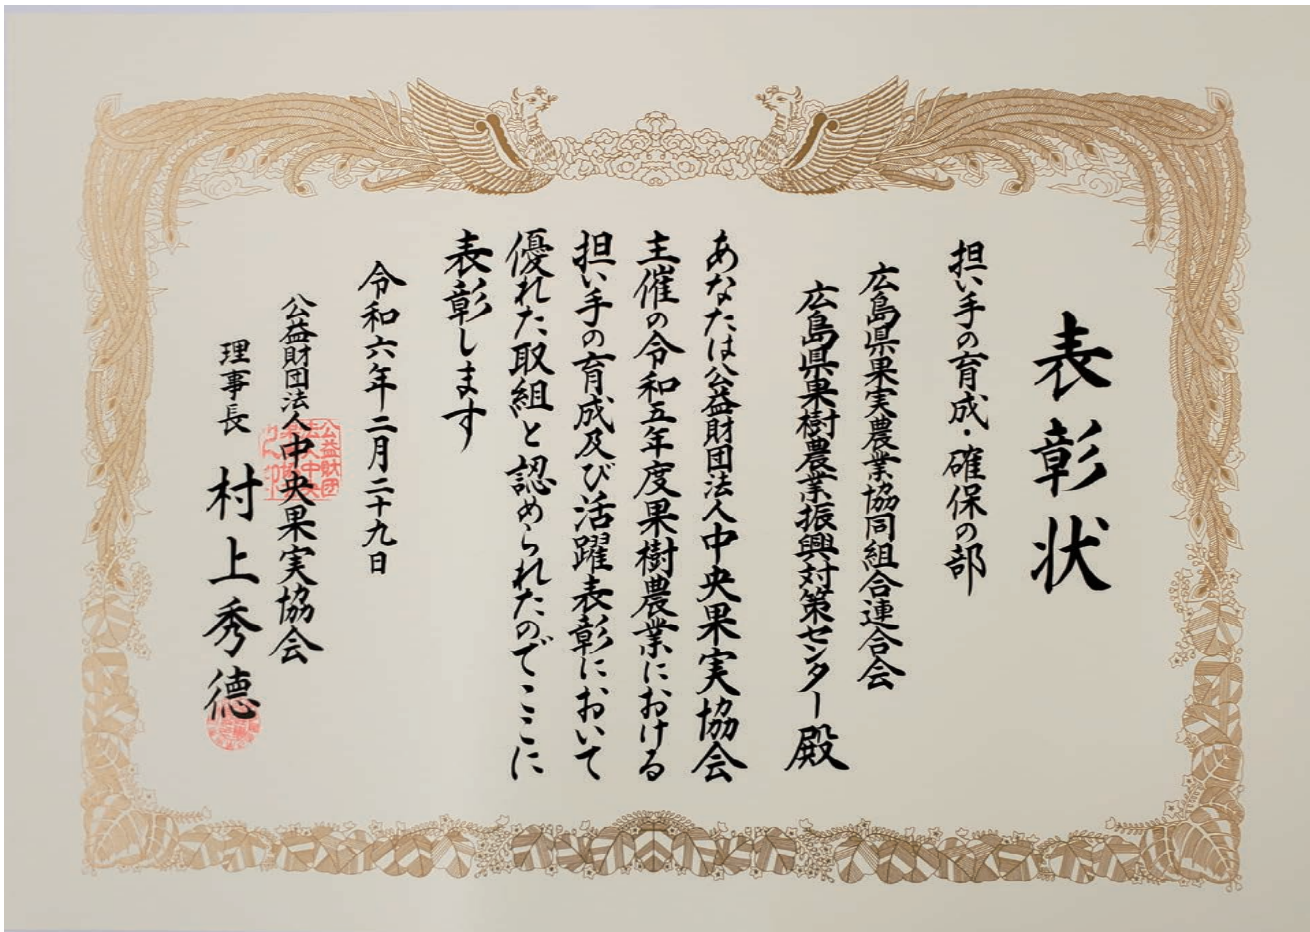 表彰状
担い手の育成・確保の部
広島県果実農業協同組合連合会
広島県果樹農業振興対策センター 殿
あなたは公益財団法人中央果実協会
主催の令和五年度果樹農業における
担い手の育成及び活躍表彰において
優れた取組と認められたのでここに
表彰します
令和六年二月二十九日
公益財団法人中央果実協会
理事長 村上秀徳